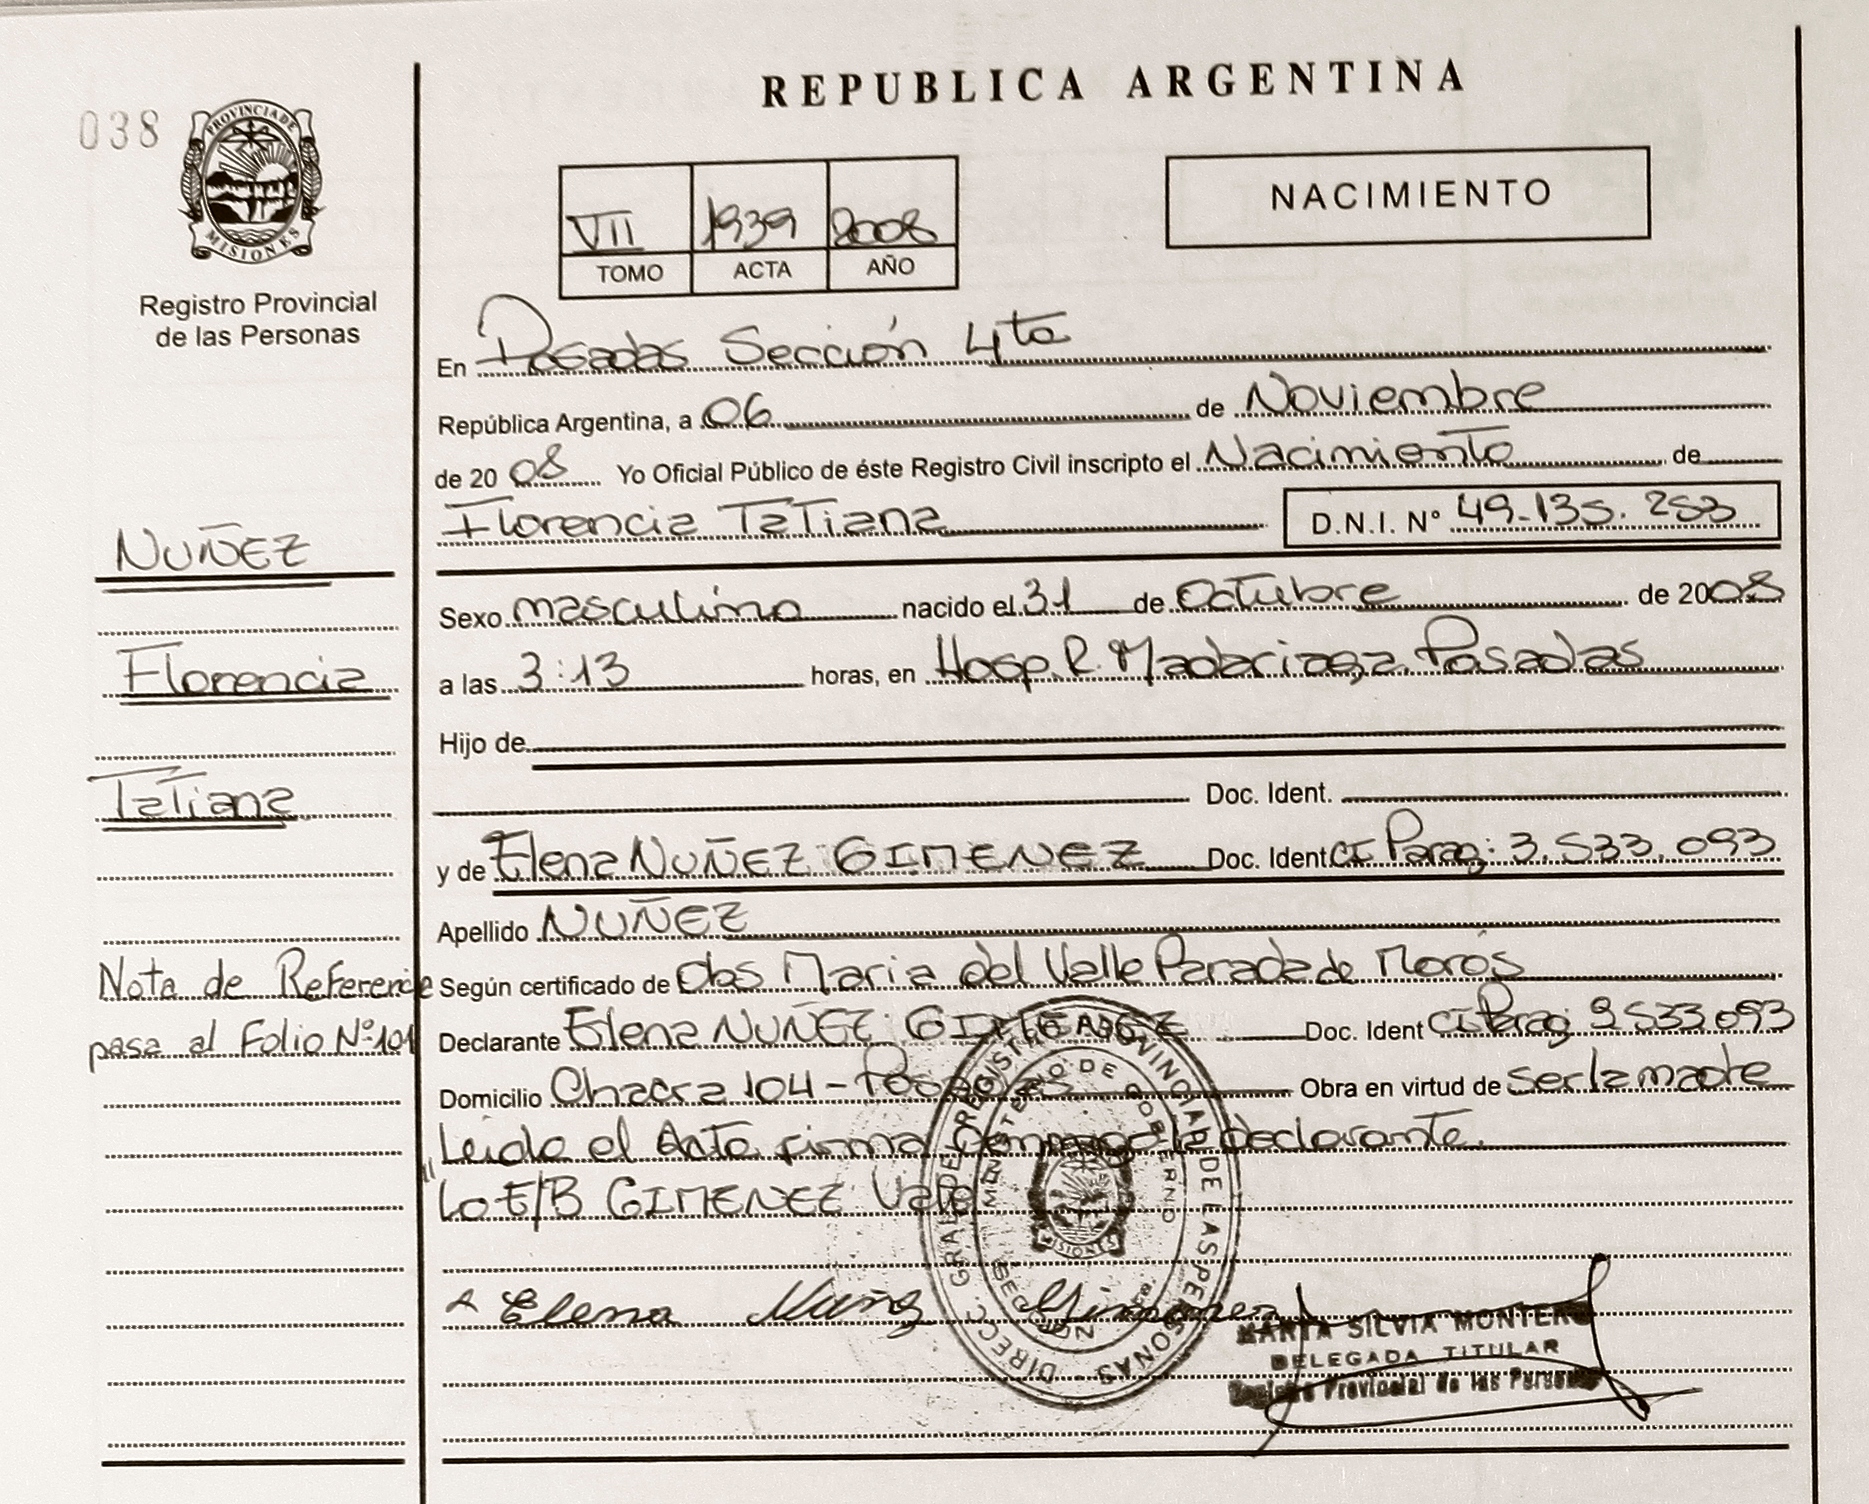 038
PROVINCIA DE
MISIONES
Registro Provincial
de las Personas
REPUBLICA ARGENTINA
VII 1939 2008
TOMO ACTA AÑO
NACIMIENTO
En Posadas Sección 4ta
República Argentina, a 06 de Noviembre
de 2008 Yo Oficial Público de éste Registro Civil inscripto el Nacimiento de
Florencia Tatiana D.N.I. N° 49-135.253
NUÑEZ
Sexo masculino nacido el 31 de Octubre de 2008
Florencia
a las 3:13 horas, en Hosp. R. Madariaga. Posadas
Hijo de
Tatiana
Doc. Ident.
y de Elena NUÑEZ GIMENEZ Doc. Ident CI Parag: 3.533.093
Apellido NUÑEZ
Nota de Referencia
Según certificado de Obs Maria del Valle Parada de Morós
pasa al Folio N°101
Declarante Elena NUÑEZ GIMENEZ Doc. Ident CI Parag 3533093
Domicilio Chacra 104 - Posadas Obra en virtud de ser la madre
Leída el Acta firma conmigo la declarante.
"Lo E/B GIMENEZ Vale
DIRECC. GRAL. DEL REGISTRO PROVINCIAL DE LAS PERSONAS
MINISTERIO DE GOBIERNO
SECCION 4ta.
MISIONES
Elena Nuñez Gimenez
MARTA SILVIA MONTERO
DELEGADA TITULAR
Registro Provincial de las Personas